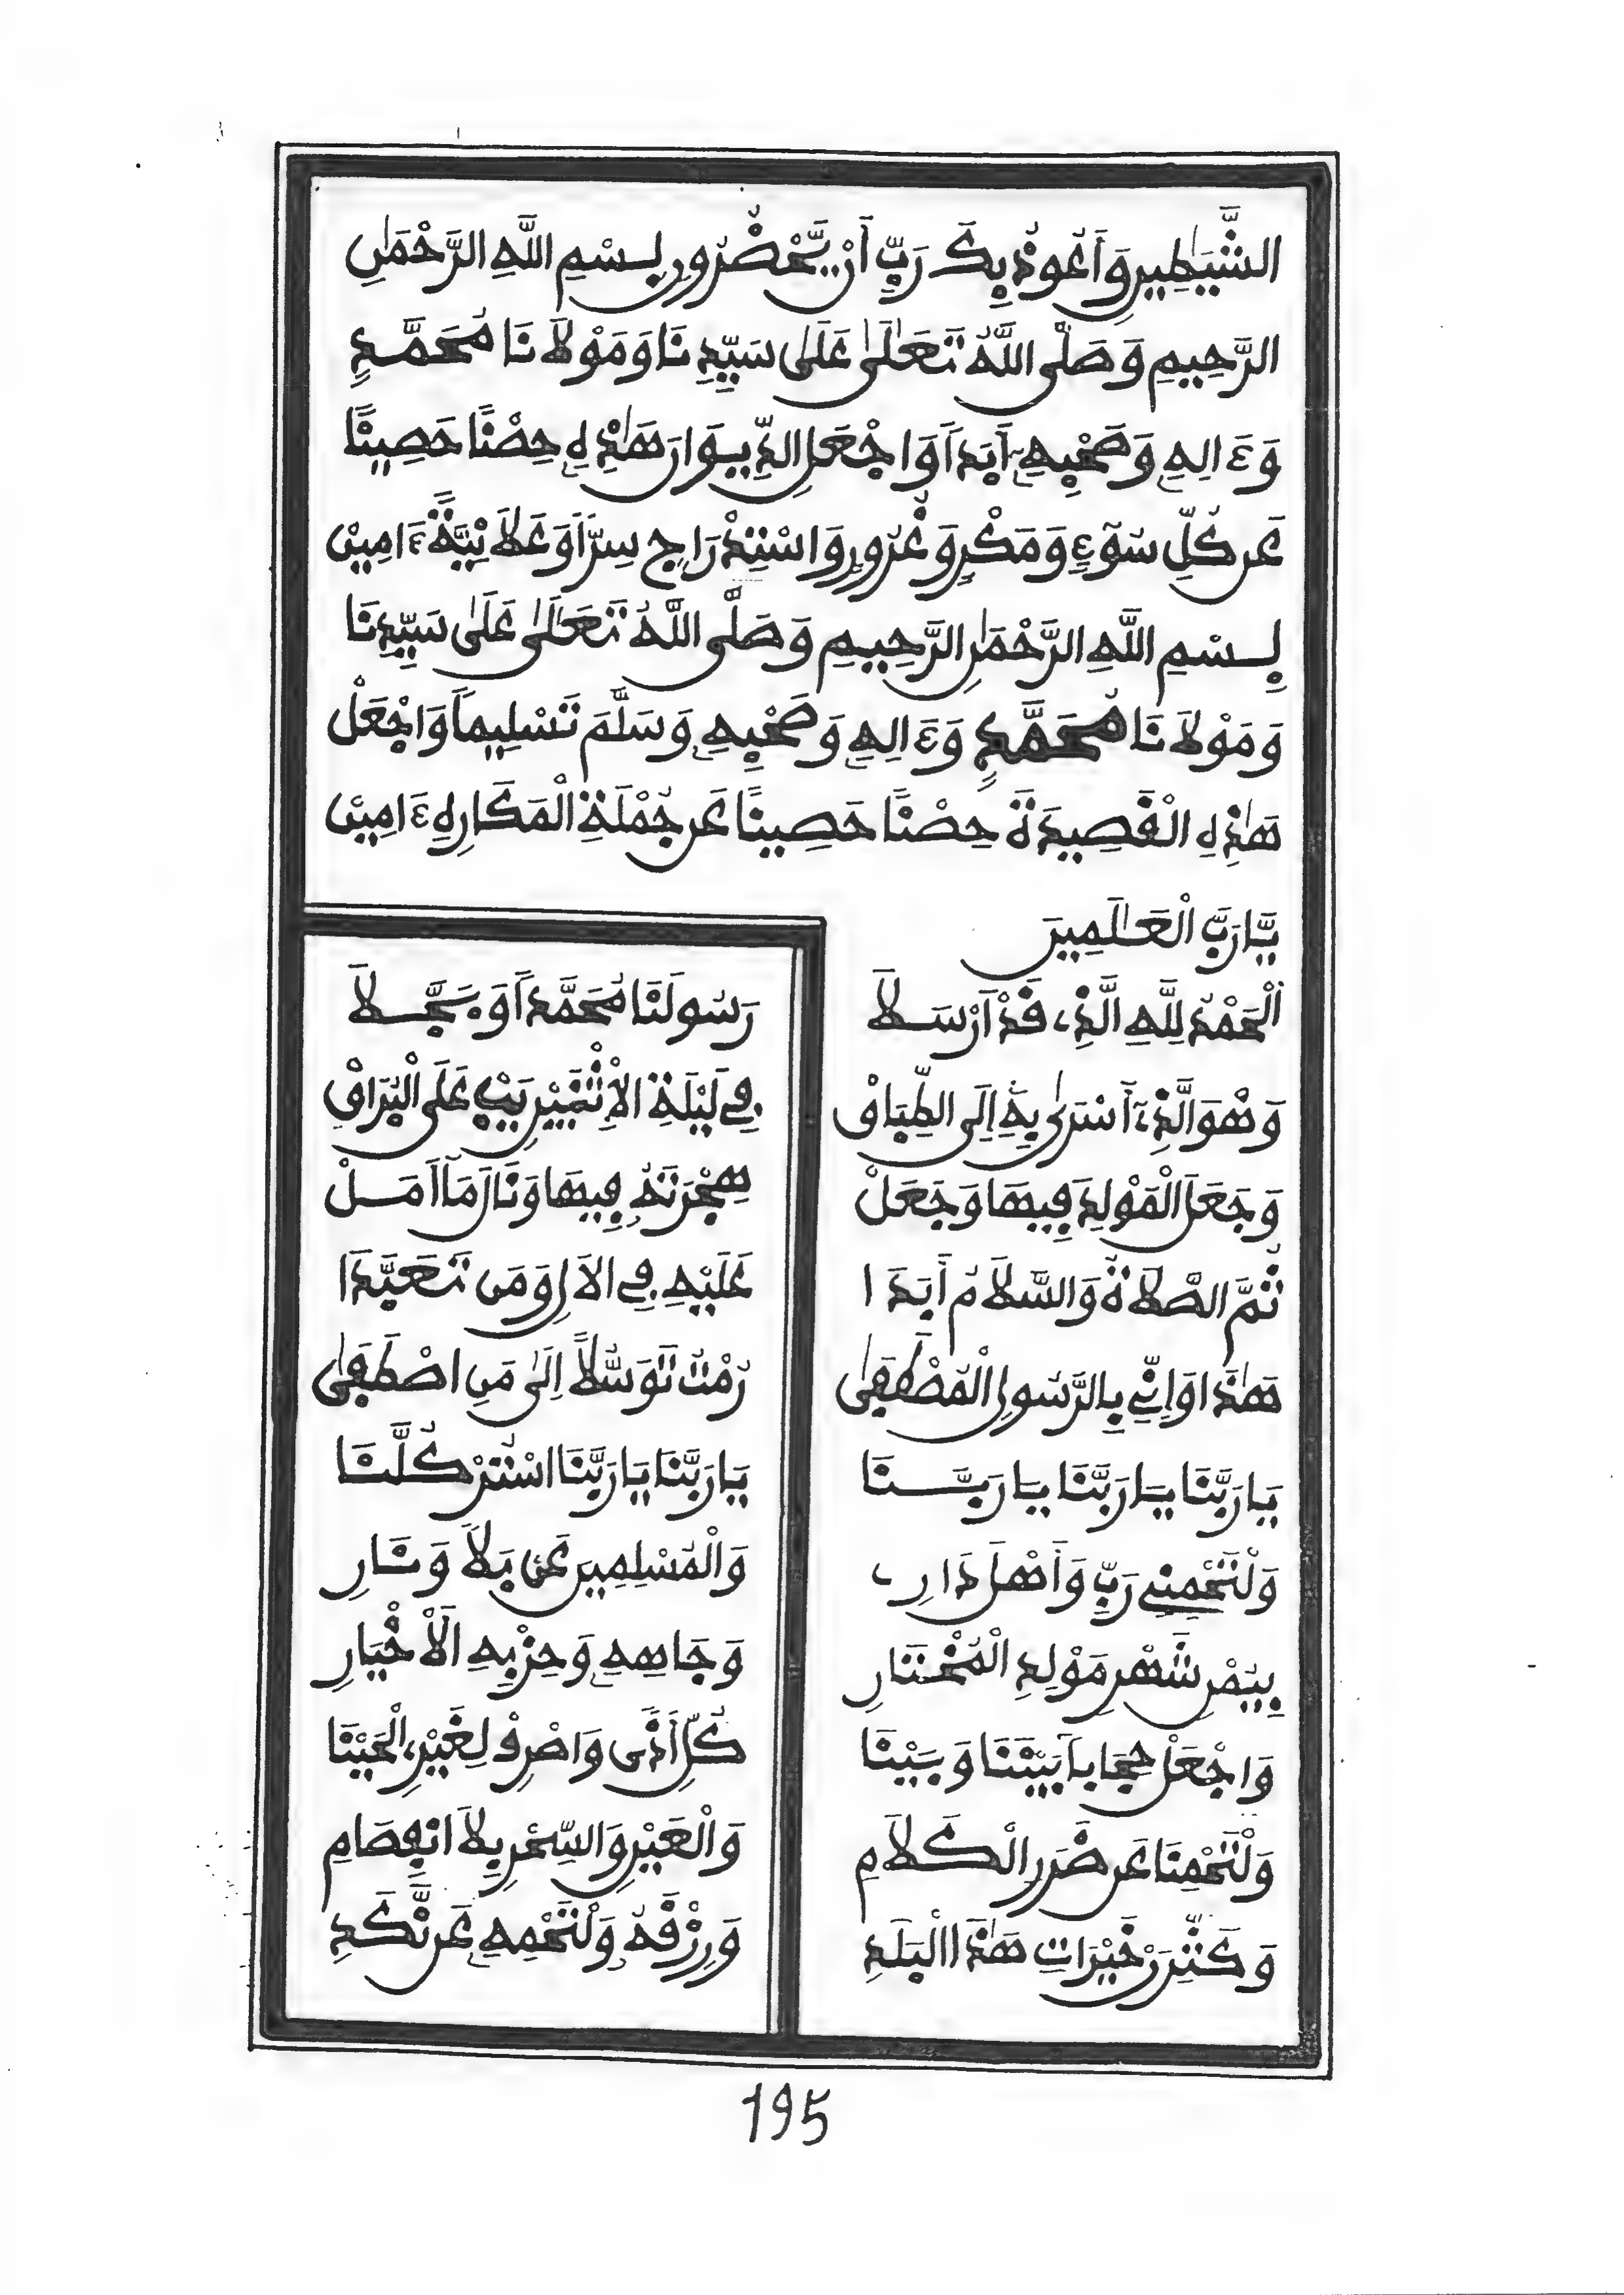 الشَّيَٰطِينِ وَأَعُوذُ بِكَ رَبِّ أَنْ يَّحْضُرُونِ بِسْمِ اللَّهِ الرَّحْمَٰنِ
الرَّحِيمِ وَصَلَّى اللَّهُ تَعَالَىٰ عَلَىٰ سَيِّدِنَا وَمَوْلَانَا مُحَمَّدٍ
وَءَالِهِ وَصَحْبِهِ أَبَداً وَاجْعَلِ الدِّيوَانَ هَٰذِهِ حِصْنًا حَصِينًا
عَن كُلِّ سُوٓءٍ وَمَكْرٍ وَغُرُورٍ وَاسْتِدْرَاجٍ سِرّاً وَعَلَانِيَّةً ءَامِينْ
بِسْمِ اللَّهِ الرَّحْمَٰنِ الرَّحِيمِ وَصَلَّى اللَّهُ تَعَالَىٰ عَلَىٰ سَيِّدِنَا
وَمَوْلَانَا مُحَمَّدٍ وَءَالِهِ وَصَحْبِهِ وَسَلَّمَ تَسْلِيماً وَاجْعَلْ
هَٰذِهِ الْقَصِيدَةَ حِصْنًا حَصِينًا عَن جُمْلَةِ الْمَكَارِهِ ءَامِينْ
يَّا رَبَّ الْعَٰلَمِينَ
اَلْحَمْدُ لِلَّهِ الَّذِے قَدْ اَرْسَلَا رَسُولَنَا مُحَمَّداً وَبَجَّلَا
وَهُوَ الَّذِے أَسْرَىٰ بِهِ إِلَى الطِّبَاقْ فِي لَيْلَةِ الْإِثْنَيْنِ بَيْ عَلَى الْبُرَاقْ
وَجَعَلَ الْمَوْلِدَ فِيهَا وَجَعَلْ هِجْرَتَهُ فِيهَا وَنَالَ مَا أَمَلْ
ثُمَّ الصَّلَاةُ وَالسَّلَامُ أَبَدَا عَلَيْهِ فِي الْآلِ وَمَن تَعَبَّدَا
هَٰذَا وَإِنِّي بِالرَّسُولِ الْمُصْطَفَىٰ رُمْتُ تَوَسُّلاً إِلَىٰ مَنِ اصْطَفَىٰ
يَا رَبَّنَا يَا رَبَّنَا يَا رَبَّنَا يَا رَبَّنَا يَا رَبَّنَا اسْتُرْ كُلَّنَا
وَلْتَحْمِنِي رَبِّ وَأَهْلَ دَارِے وَالْمُسْلِمِينَ عَن بَلَا وَنَارِ
بِيُمْنِ شَهْرِ مَوْلِدِ الْمُخْتَارِ وَجَاهِهِ وَحِزْبِهِ الْأَخْيَارِ
وَاجْعَلْ حِجَاباً بَيْنَنَا وَبَيْنَا كُلِّ أَذًى وَاصْرِفْ لِغَيْرِ الْحَيْنَا
وَلْتَحْمِنَا عَن ضَرَرِ الْكَلَامِ وَالْعَيْنِ وَالسِّحْرِ بِلَا انْفِصَامِ
وَكَثِّرَنْ خَيْرَاتِ هَٰذَا الْبَلَدِ وَرِزْقَهُ وَلْتَحْمِهِ عَن نَّكَدِ
195